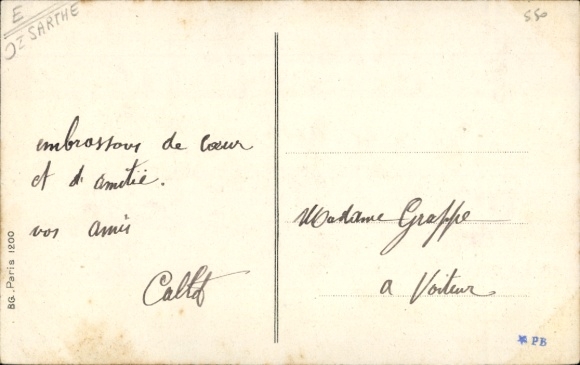 E
SARTHE
550
embrassons de cœur
et d'amitié.
vos amis
Madame Grappe
a Voiteur
BG. Paris 1200
PB